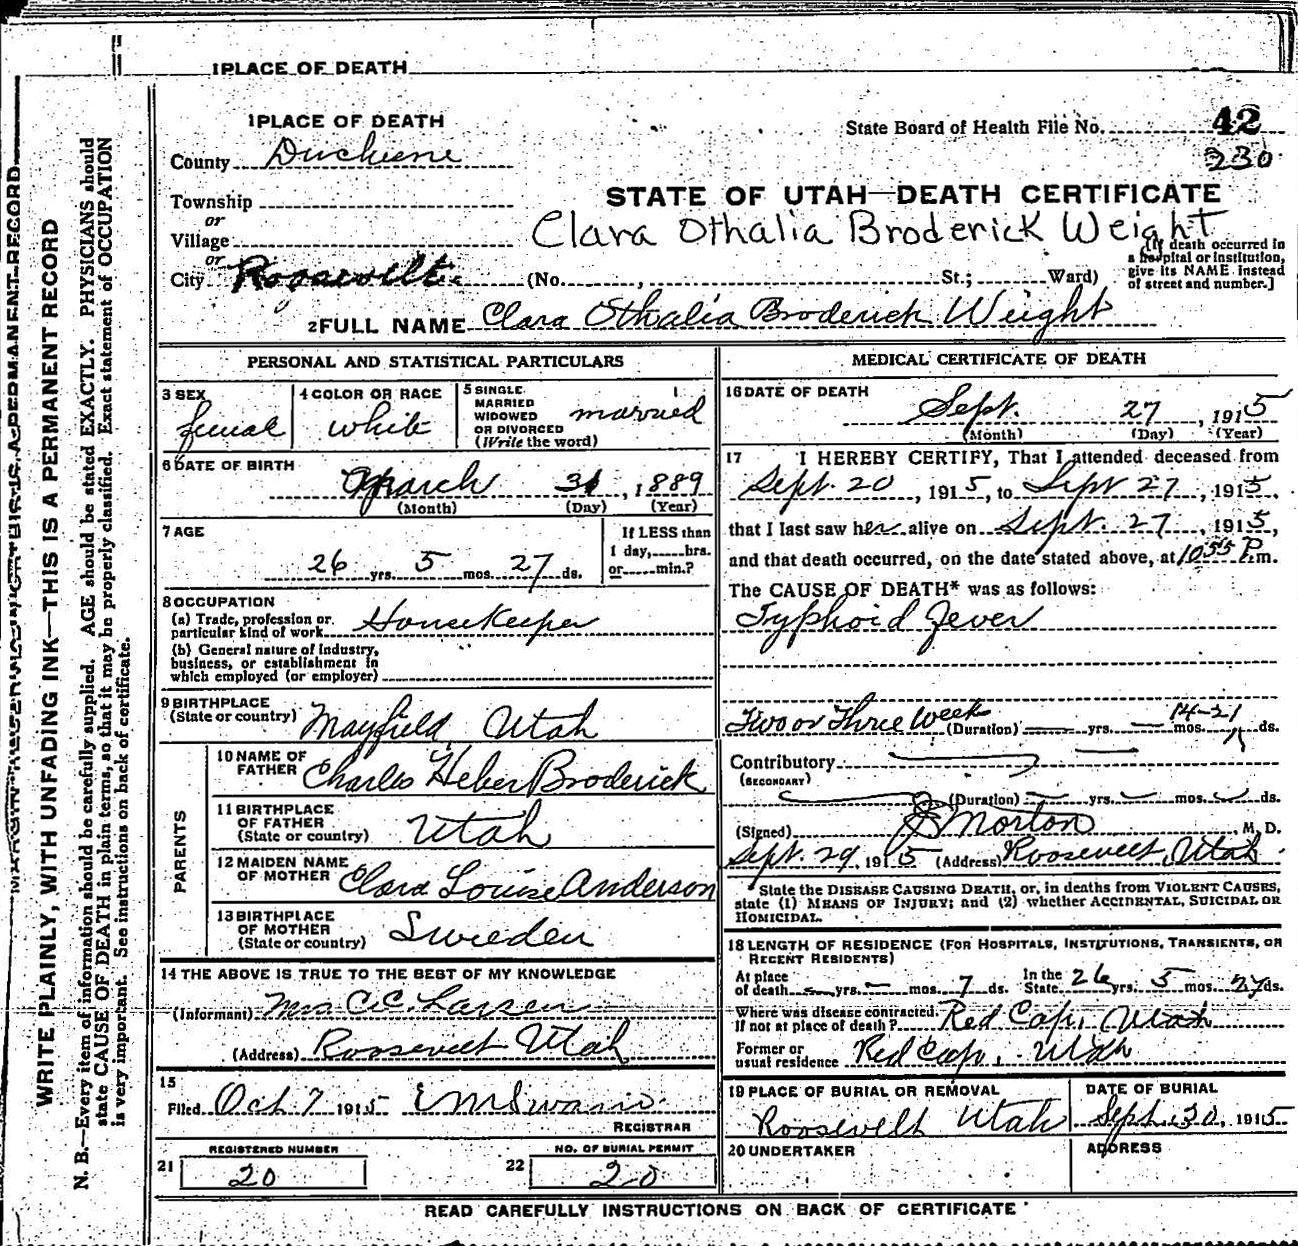 1 PLACE OF DEATH
1 PLACE OF DEATH
State Board of Health File No. 42
230
County Duchesne
STATE OF UTAH—DEATH CERTIFICATE
Township
or
Village
Clara Othalia Broderick Weight
or
City Roosevelt (No. , St.; Ward)
(If death occurred in a hospital or institution, give its NAME instead of street and number.]
2 FULL NAME Clara Othalia Broderick Weight
PERSONAL AND STATISTICAL PARTICULARS
3 SEX
femal
4 COLOR OR RACE
white
5 SINGLE
MARRIED
WIDOWED
OR DIVORCED
(Write the word)
married
6 DATE OF BIRTH
March 31, 1889
(Month) (Day) (Year)
7 AGE
26 yrs. 5 mos. 27 ds.
If LESS than
1 day, hrs.
or min.?
8 OCCUPATION
(a) Trade, profession or
particular kind of work Housekeeper
(b) General nature of industry,
business, or establishment in
which employed (or employer)
9 BIRTHPLACE
(State or country) Mayfield, Utah
PARENTS
10 NAME OF
FATHER Charles Heber Broderick
11 BIRTHPLACE
OF FATHER
(State or country) Utah
12 MAIDEN NAME
OF MOTHER Clara Louise Anderson
13 BIRTHPLACE
OF MOTHER
(State or country) Sweeden
14 THE ABOVE IS TRUE TO THE BEST OF MY KNOWLEDGE
(Informant) Mrs C.C. Larsen
(Address) Roosevelt Utah
15
Filed Oct 7 1915
REGISTRAR
REGISTERED NUMBER
21 20
NO. OF BURIAL PERMIT
22 20
MEDICAL CERTIFICATE OF DEATH
16 DATE OF DEATH
Sept. 27, 1915
(Month) (Day) (Year)
17 I HEREBY CERTIFY, That I attended deceased from
Sept. 20, 1915, to Sept 27, 1915,
that I last saw her alive on Sept. 27, 1915,
and that death occurred, on the date stated above, at 10 55 P.m.
The CAUSE OF DEATH* was as follows:
Typhoid Fever
Two or Three Week (Duration) yrs. mos. 14-21 ds.
Contributory
(SECONDARY)
(Duration) yrs. mos. ds.
(Signed) Morton, M. D.
Sept. 29 1915 (Address) Roosevelt, Utah
State the DISEASE CAUSING DEATH, or, in deaths from VIOLENT CAUSES,
state (1) MEANS OF INJURY; and (2) whether ACCIDENTAL, SUICIDAL OR
HOMICIDAL.
18 LENGTH OF RESIDENCE (FOR HOSPITALS, INSTITUTIONS, TRANSIENTS, OR
RECENT RESIDENTS)
At place
of death yrs. mos. 7 ds.
In the
State 26 yrs. 5 mos. 27 ds.
Where was disease contracted
If not at place of death? Red Cap, Utah
Former or
usual residence Red Cap, Utah
19 PLACE OF BURIAL OR REMOVAL
Roosevelt Utah
DATE OF BURIAL
Sept. 30, 1915
20 UNDERTAKER
ADDRESS
READ CAREFULLY INSTRUCTIONS ON BACK OF CERTIFICATE
WRITE PLAINLY, WITH UNFADING INK—THIS IS A PERMANENT RECORD
N. B.—Every item of information should be carefully supplied. AGE should be stated EXACTLY. PHYSICIANS should
state CAUSE OF DEATH in plain terms, so that it may be properly classified. Exact statement of OCCUPATION
is very important. See instructions on back of certificate.